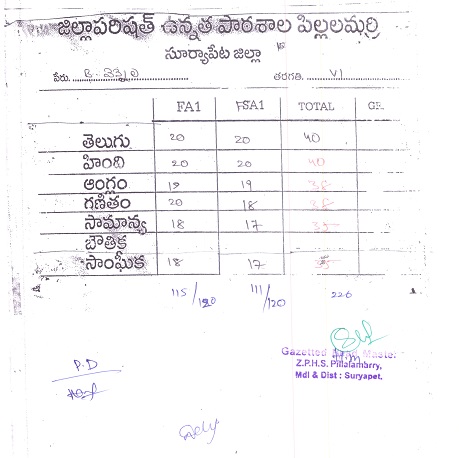 జిల్లాపరిషత్ ఉన్నత పాఠశాల పిల్లలమర్రి
సూర్యాపేట జిల్లా
పేరు. తరగతి. VI
FA1 FSA1 TOTAL GR.
తెలుగు 20 20 40
హింది 20 20 40
ఆంగ్లం 19 19 38
గణితం 20 18 38
సామాన్య 18 17 35
భౌతిక
సాంఘీక 18 17 35
115/120 111/120 226
Gazetted Head Master
Z.P.H.S. Pillalamarry,
Mdl & Dist : Suryapet.
P.D